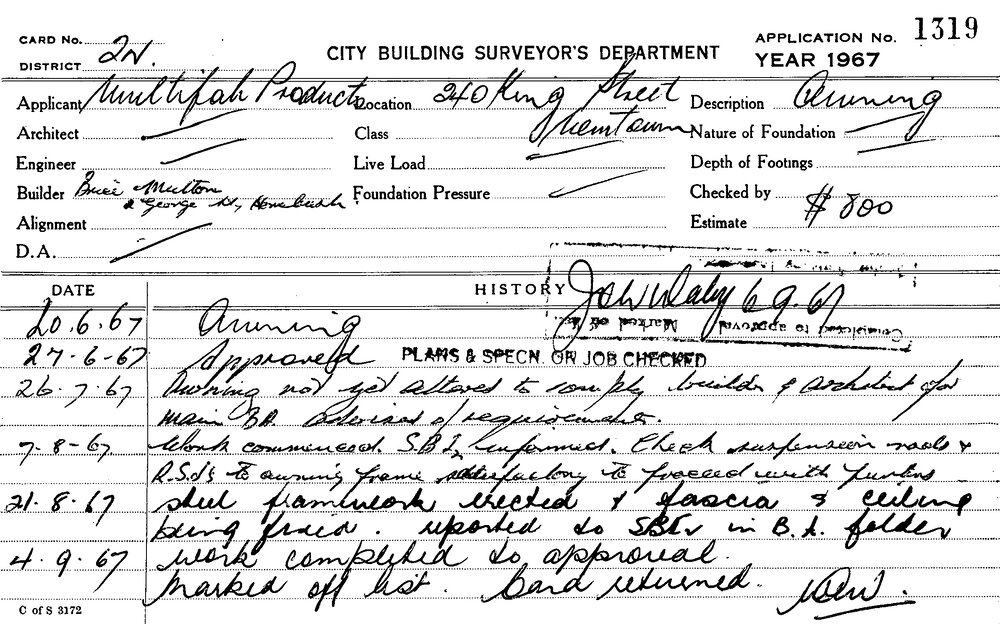 CARD No. 2N. CITY BUILDING SURVEYOR'S DEPARTMENT APPLICATION No. 1319
DISTRICT YEAR 1967
Applicant Multifab Products Location 240 King Street Description Awning
Architect Class Newtown Nature of Foundation
Engineer Live Load Depth of Footings
Builder Bruce Multon Foundation Pressure Checked by
George St, Homebush Estimate $800
Alignment
D.A.
DATE HISTORY 6 9 67
Completed to approval Marked off list
20.6.67 Awning
27-6-67 Approved PLANS & SPECN. OR JOB CHECKED
26.7.67 Awning not yet altered to comply builder & architect for
main BA advised of requirements.
7-8-67. Work commenced. S.B.I. informed. Check suspension rods &
R.S.J's to awning frame satisfactory to proceed with purlins
21.8.67 steel framework erected & fascia & ceiling
being fixed. reported to in B.A. folder
4.9.67 work completed to approval.
Marked off list. Card returned.
C of S 3172